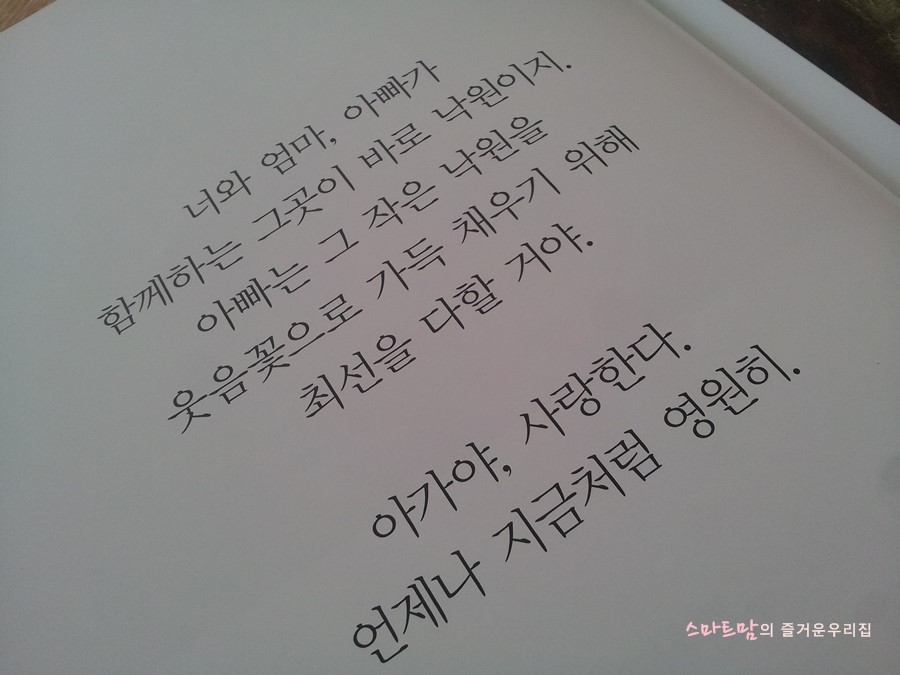 너와 엄마, 아빠가
함께하는 그곳이 바로 낙원이지.
아빠는 그 작은 낙원을
웃음꽃으로 가득 채우기 위해
최선을 다할 거야.
아가야, 사랑한다.
언제나 지금처럼 영원히.
스마트맘의 즐거운우리집